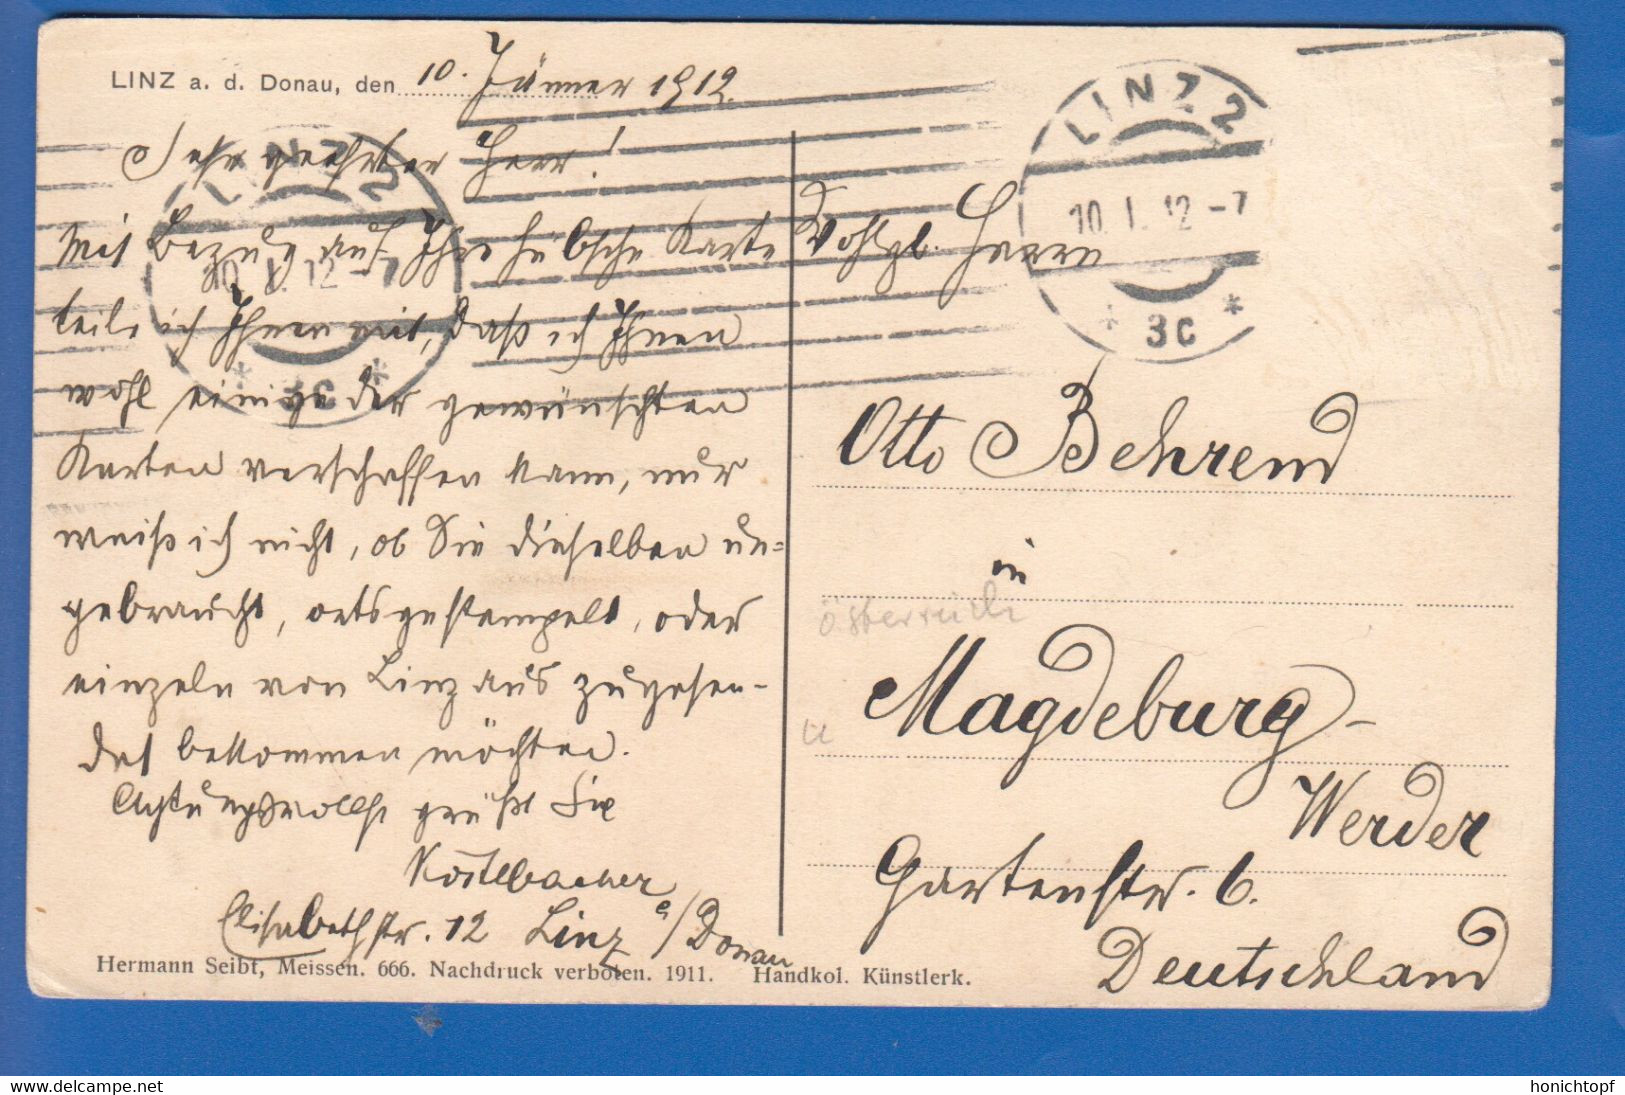 LINZ a. d. Donau, den 10. Jänner 1912.
Sehr geehrter Herr!
Mit Bezug auf Ihre hübsche Karte
teile ich Ihnen mit, daß ich Ihnen
wohl einige der gewünschten
Karten verschaffen kann, nur
weiß ich nicht, ob Sie dieselben un=
gebraucht, ortsgestempelt, oder
einzeln von Linz aus zugesen-
det bekommen möchten.
Achtungsvollst grüßt Sie
Köstlbacher
Elisabethstr. 12 Linz a/Donau
Hermann Seibt, Meissen. 666. Nachdruck verboten. 1911. Handkol. Künstlerk.
LINZ 2
10. I. 12 -7
* 3c *
LINZ 2
10. I. 12 -7
* 3c *
Wohlgb. Herrn
Otto Behrend
in
Österreich
Magdeburg-
Werder
Gartenstr. 6.
Deutschland
honichtopf
www.delcampe.net